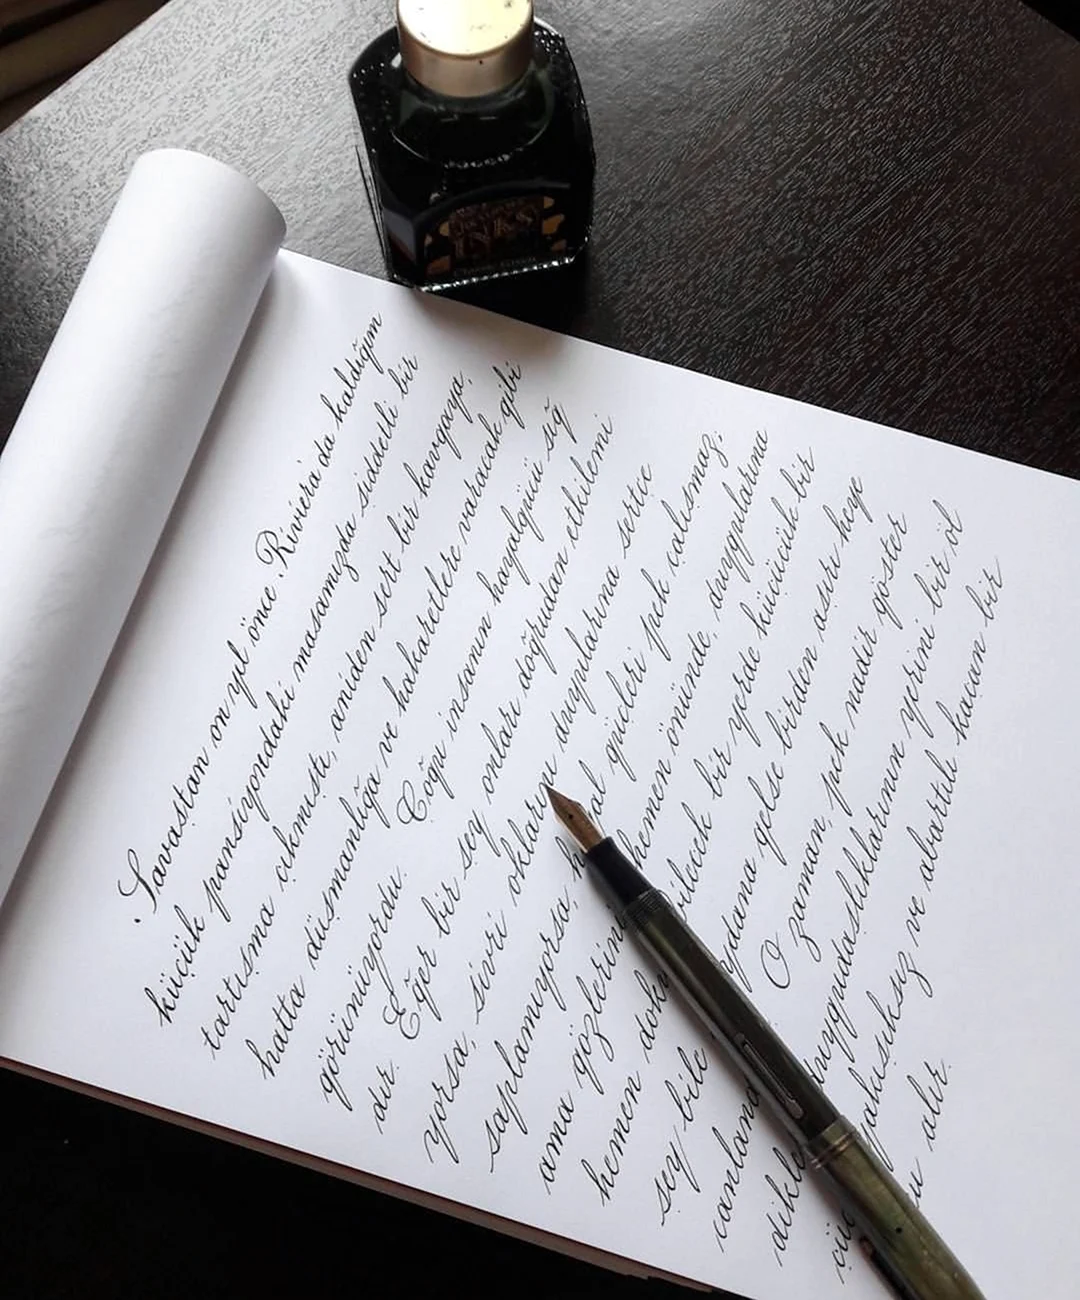 Savaştan on yıl önce Riviera'da kaldığım
küçük pansiyondaki masamızda şiddetli bir
tartışma çıkmıştı, aniden sert bir kavgaya,
hatta düşmanlığa ve hakaretlere varacak gibi
görünüyordu. Çoğu insanın hayalgücü sığ
dır. Eğer bir şey onları doğrudan etkilemi
yorsa, sivri oklarını duygularına sertçe
saplamıyorsa, güçleri pek çalışmaz;
ama gözlerinin hemen önünde, duygularına
hemen bir yerde küçücük bir
şey bile gelse birden aşırı heye
O zaman, pek nadir göster
duygudaşlıklarının yerini bir öl
yakışıksız ve abartılı kaçan bir
alır.
INKS